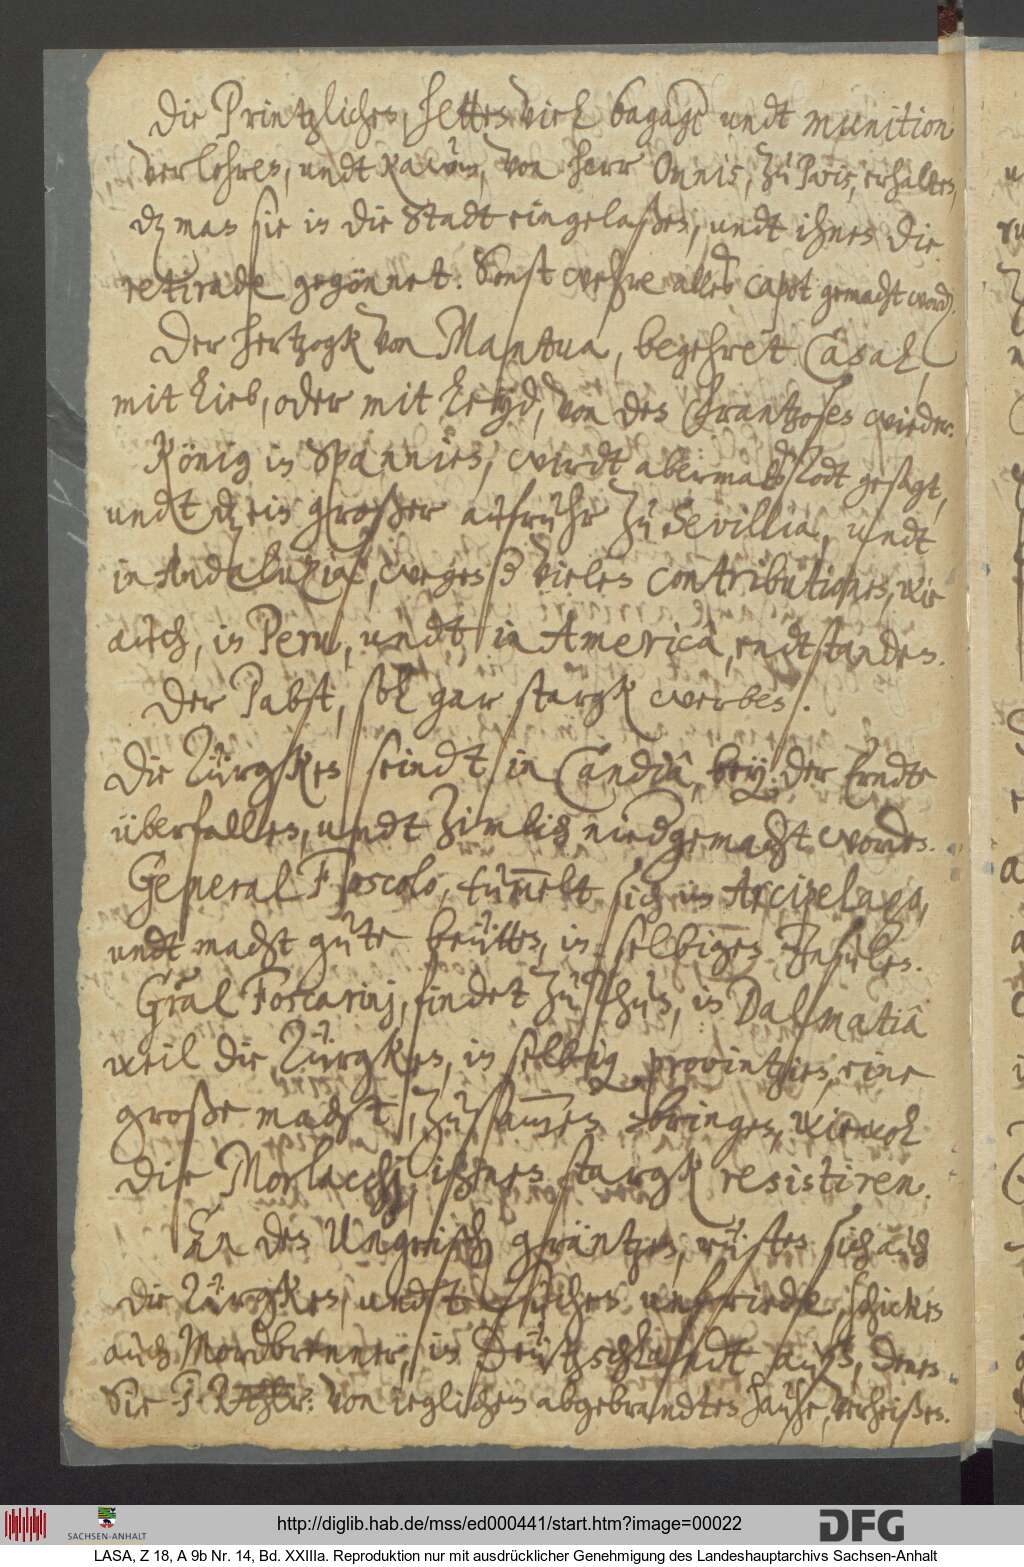 Die Printzlichen, hetten viel bagage undt munition
verlohren, undt kaum, von herr Omnis, zu Paris, erhalten,
dz man sie in die Stadt eingelaßen, undt ihnen die
retirade gegönnet. Sonst wehre alles capot gemacht word.
Der hertzogk von Mantua, begehret Casal,
mit lieb, oder mit leyd, von den Frantzosen wieder.
König in Spannien, wirdt abermals Todt gesagt,
undt dz ein großer aufruhr zu Sevillia, undt
in Andaluzia, wegen vielen contributionen, wie
auch, in Peru, undt in America, endtstanden.
Der Pabst, sol gar stargk werben.
Die Türgken seindt in Candia, bey der Erndte
überfallen, undt zimlich niedgemacht worden.
General Foscolo, tummelt sich in Arcipelago,
undt macht gute beutten, in selbigen Inseln.
Gral Foscarinj, findet zu thun, in Dalmatia
weil die Türgken, in selbig provintzien, eine
große macht, zusammen bringen, wiewol
die Morlacchj, ihnen stargk resistiren.
An den Ungrisch gräntzen, rüsten sich auch
die Türgken, undt suchen unfriede, schicken
auch Mordbrenner, in Deutzschlandt auß, denen
Sie Rthlr: von ieglichem abgebrandten hause, verheißen.
SACHSEN-ANHALT
http://diglib.hab.de/mss/ed000441/start.htm?image=00022
DFG
LASA, Z 18, A 9b Nr. 14, Bd. XXIIIa. Reproduktion nur mit ausdrücklicher Genehmigung des Landeshauptarchivs Sachsen-Anhalt